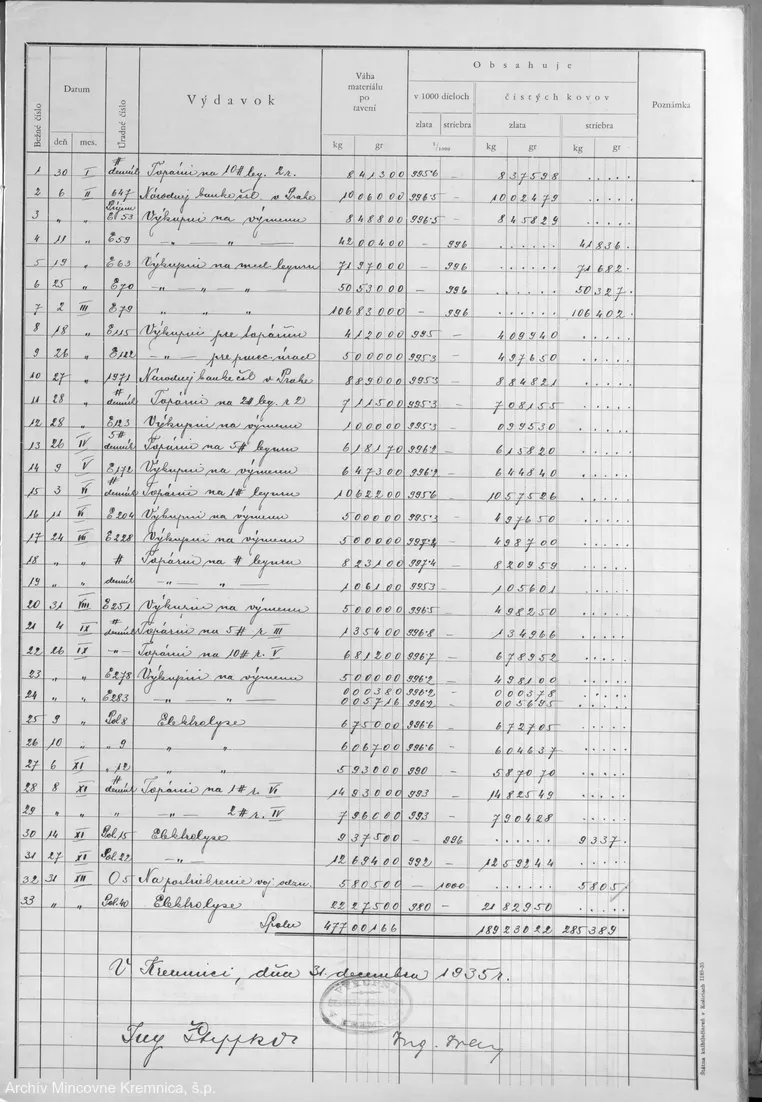 Obsahuje
Bežné číslo Datum Úradné číslo Výdavok Váha materiálu po tavení v 1000 dieloch čistých kovov Poznámka
zlata striebra zlata striebra
deň mes. kg gr 1/1000 kg gr kg gr
1 30 I # Topárni na 10# leg. 2 r. 841300 995·6 837598 .....
2 6 II 647 Národnej banke čsl. v Prahe 1006000 996·5 1002479 .....
3 „ „ E53 Výkupni na výmenu 848800 996·5 845829 .....
4 11 „ E59 —„— „ — 4200400 – 996 ...... 41836·
5 19 „ E63 Výkupni na med. leguru 7197000 – 996 ...... 71682·
6 25 „ E70 —„—„—„— 5053000 – 996 ...... 50327·
7 2 III E79 „ „ „ 10683000 – 996 ...... 106402·
8 18 „ E115 Výkupni pre topáreň 412000 995 – 409940 .....
9 26 „ E122 —„— pre punc. úrad 500000 995·3 – 497650 .....
10 27 „ 1971 Národnej banke čsl. v Prahe 889000 995·3 – 884821 .....
11 28 „ # Topárni na 2# leg. r 2 711500 995·3 – 708155 .....
12 28 „ E123 Výkupni na výmenu 100000 995·3 – 099530 .....
13 26 IV 5# Topárni na 5# leguru 618170 996·2 – 615820 .....
14 9 V E172 Výkupni na výmenu 647300 996·2 – 644840 .....
15 3 VI # Topárni na 1# leguru 1062200 995·6 – 1057526 .....
16 11 VI E204 Výkupni na výmenu 500000 995·3 – 497650 .....
17 24 VII E228 Výkupni na výmenu 500000 997·4 – 498700 .....
18 „ „ # Topárni na # leguru 823100 997·4 – 820959 .....
19 „ „ —„— „— 106100 995·3 – 105601 .....
20 31 VIII E251 Výkupni na výmenu 500000 996·5 – 498250 .....
21 4 IX # Topárni na 5# r. III 135400 996·8 – 134966 .....
22 26 IX —„— Topárni na 10# r. V 681200 996·7 – 678952 .....
23 „ „ E278 Výkupni na výmenu 500000 996·2 – 498100 .....
000380 996·2 – 000378 .....
24 „ „ E283 —„— „— 005716 996·2 – 005695 .....
25 9 „ Pol 8 Elektrolyse 675000 996·6 – 672705 .....
26 10 „ „ 9 „ „ 606700 996·6 – 604637 .....
27 6 XI „ 12 „ „ 593000 990 – 587070 .....
28 8 XI # Topárni na 1# r. VI 1493000 993 – 1482549 .....
29 „ „ „ —„— 2# r. IV 796000 993 – 790428 .....
30 14 XI Pol. 15 Elektrolyse 937500 – 996 ...... 9337·
31 27 XI Pol. 22 —„— 1269400 992 – 1259244 .....
32 31 XII 05 580500 – 1000 ...... 5805
33 „ „ Pol. 40 Elektrolyse 2227500 980 – 2182950 .....
Spolu 47700166 18923022 285389
V Kremnici, dňa 31 decembra 1935 r.
Ing.
Archív Mincovne Kremnica, š.p.